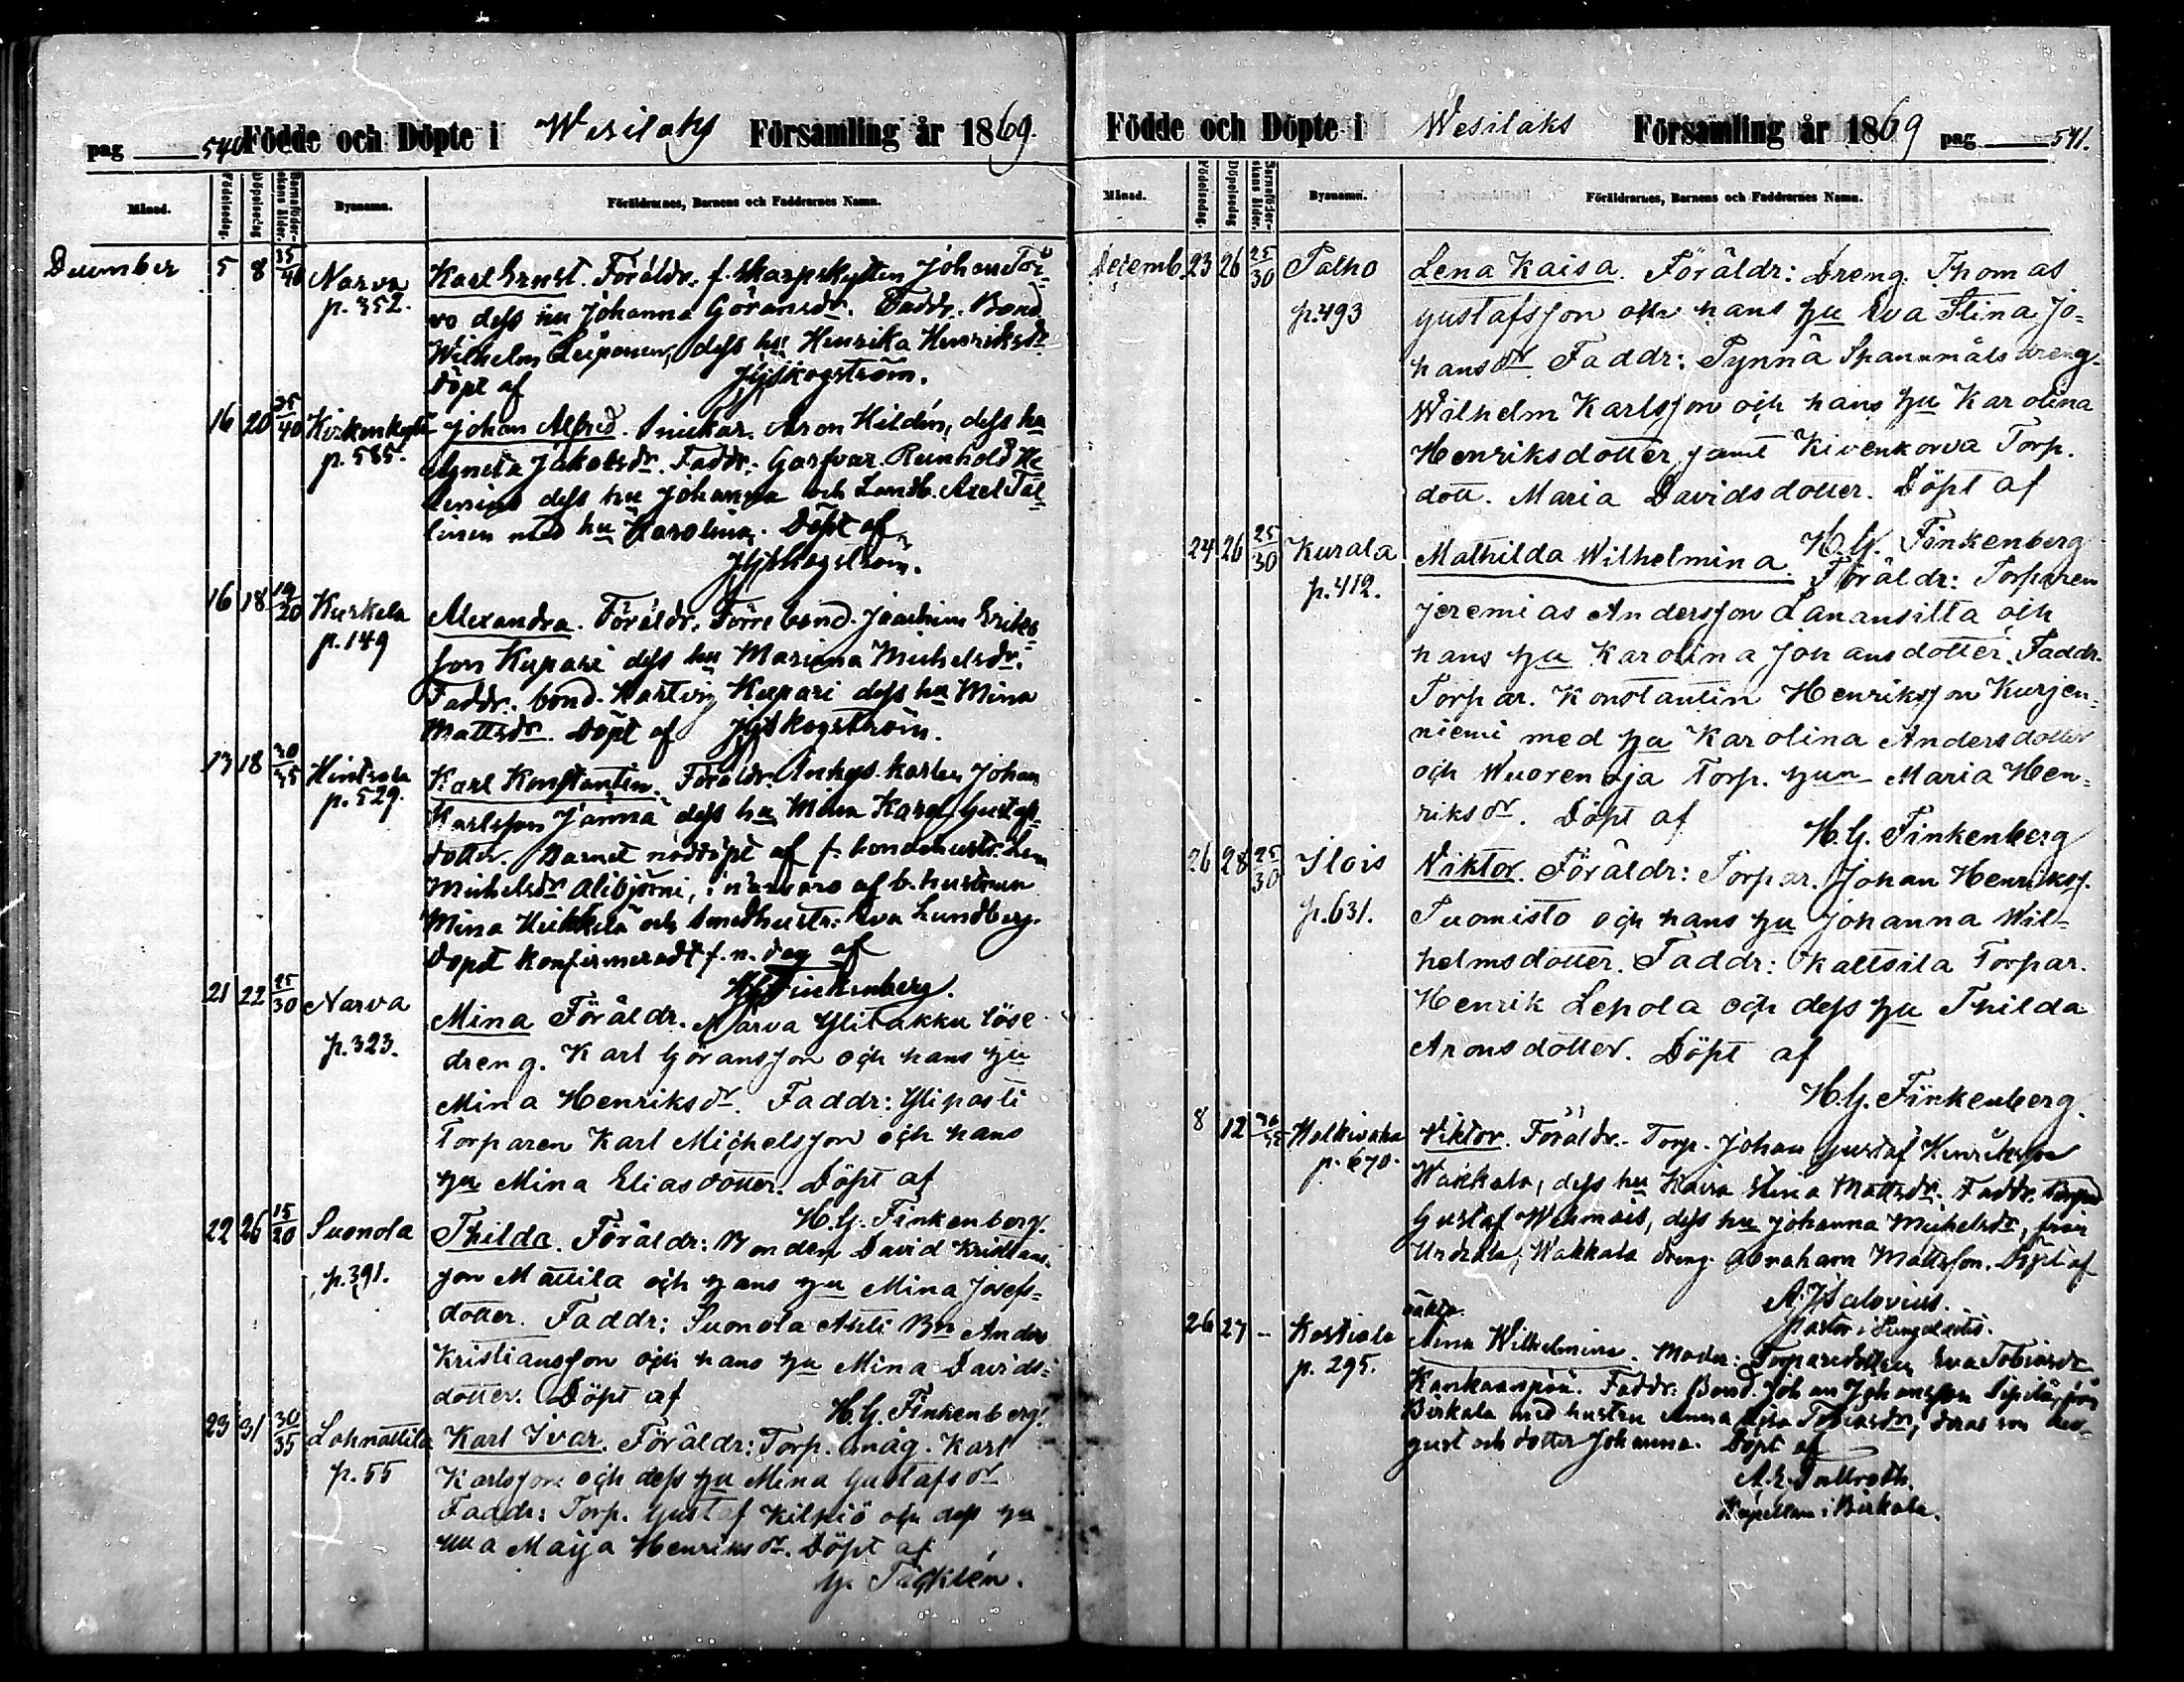 pag 540 Födde och Döpte i Wesilaks Församling år 1869.
Månad. Födelsedag. Döpelsedag Barnaföderskans ålder. Bynamn. Föräldrarnes, Barnens och Faddrarnes Namn.
December 5 8 35/40 Narva Karl Ernst. Föräldr. f. Skarpskytten Johan Tör-
p. 352. vo dess hu Johanna Göransdr. Faddr. Bond.
Wilhelm Leiponen, dess hu Henrika Henriksdr
Döpt af Skogström.
16 20 35/40 Johan Alfred. Snickar. Aron Hildén, dess hu
p. 585. Agneta Jakobsdr. Faddr. Garfvar. Reinhold He-
lenius dess hu Johanna och Landb. Axel Tal-
linen med hu Karolina. Döpt af
Skogström.
16 18 19/20 Kurkela Alexandra. Föräldr. Förre bond. Joachim Eriks-
p. 149 son Kupari dess hu Mariana Michelsdr.
Faddr. bond. Hartvig Kupari dess hu Mina
Mattsdr. Döpt af Skogström.
17 18 30/35 Hinsala Karl Konstantin. Föräldr. Johan
p. 529. Karlsson Janna dess hu Mina Karol. Gustafs-
dotter. Barnet nöddöpt af f. bondehustr. Lena
Michelsdr Alibjörni, i närvaro af b. hustrun
Mina Heikkilä och Smedhustr. Eva Lundberg.
Dopet konfirmeradt f. n. dag af
H.G. Finkenberg.
21 22 25/30 Narva Mina Föräldr. Narva Ylitakku löse
p. 323. dreng. Karl Göransson och hans hu
Mina Henriksdr. Faddr: Ylipasti
Torparen Karl Michelsson och hans
hu Mina Eliasdotter. Döpt af
H.G. Finkenberg.
22 26 15/20 Suonola Thilda. Föräldr: Bonden David Kristians-
p. 391. son Mattila och hans hu Mina Josefs-
dotter. Faddr: Suonola Anti Bn Anders
Kristiansson och hans hu Mina Davids-
dotter. Döpt af
H.G. Finkenberg.
23 31 30/35 Lahnattila Karl Ivar. Föräldr: Torp. måg. Karl
p. 55 Karlsson och dess hu Mina Gustafsdr
Faddr: Torp. Gustaf Kilpiö och dess hu
Maija Henriksdr. Döpt af
G. Täcklén.
Födde och Döpte i Wesilaks Församling år 1869 pag 541.
Månad. Födelsedag. Döpelsedag Barnaföderskans ålder. Bynamn. Föräldrarnes, Barnens och Faddrarnes Namn.
Decemb. 23 26 25/30 Palho Lena Kaisa. Föräldr: Dreng. Thomas
p. 493 Gustafsson och hans hu Eva Stina Jo-
hansdr. Faddr: Pynnä Spannmåls dreng.
Wilhelm Karlsson och hans hu Karolina
Henriksdotter, samt Kivenkorva Torp.
dott. Maria Davidsdotter. Döpt af
H.G. Finkenberg
24 26 25/30 Kurala Mathilda Wilhelmina. Föräldr: Torparen
p. 412. Jeremias Andersson Lanansilta och
hans hu Karolina Johansdotter. Faddr.
Torpar. Konstantin Henriksson Kurjen-
niemi med hu Karolina Andersdotter
och Wuorenoja Torp. hun Maria Hen-
riksdr. Döpt af
H.G. Finkenberg
26 28 25/30 Ilois Wiktor. Föräldr: Torpar. Johan Henrikss.
p. 631. Tuomisto och hans hu Johanna Wil-
helmsdotter. Faddr: Kaltsila Torpar.
Henrik Lepola och dess hu Thilda
Aronsdotter. Döpt af
H.G. Finkenberg.
8 12 Halkivaha Viktor. Föräldr. Torp. Johan Gustaf Henriksson
p. 670. Wakkala, dess hu Kaisa Stina Mattsdr. Faddr.
Gustaf Wehmais, dess hu Johanna Michelsdr, från
Urdiala, Wakkala dreng Abraham Mattsson. Döpt af
A. J. Salovius.
Pastor i
oäkta.
26 27 - Kostiala Mina Wilhelmina. Moder: Torparedottern Eva Tobiasdr
p. 295. Kankaanpää. Faddr: Bond. Johan Johansson Sipilä, från
Birkala med hustru Anna Tobiasdr, deras son Au-
gust och dotter Johanna. Döpt af
A.E. Tallroth.
Kapellan i Birkala.